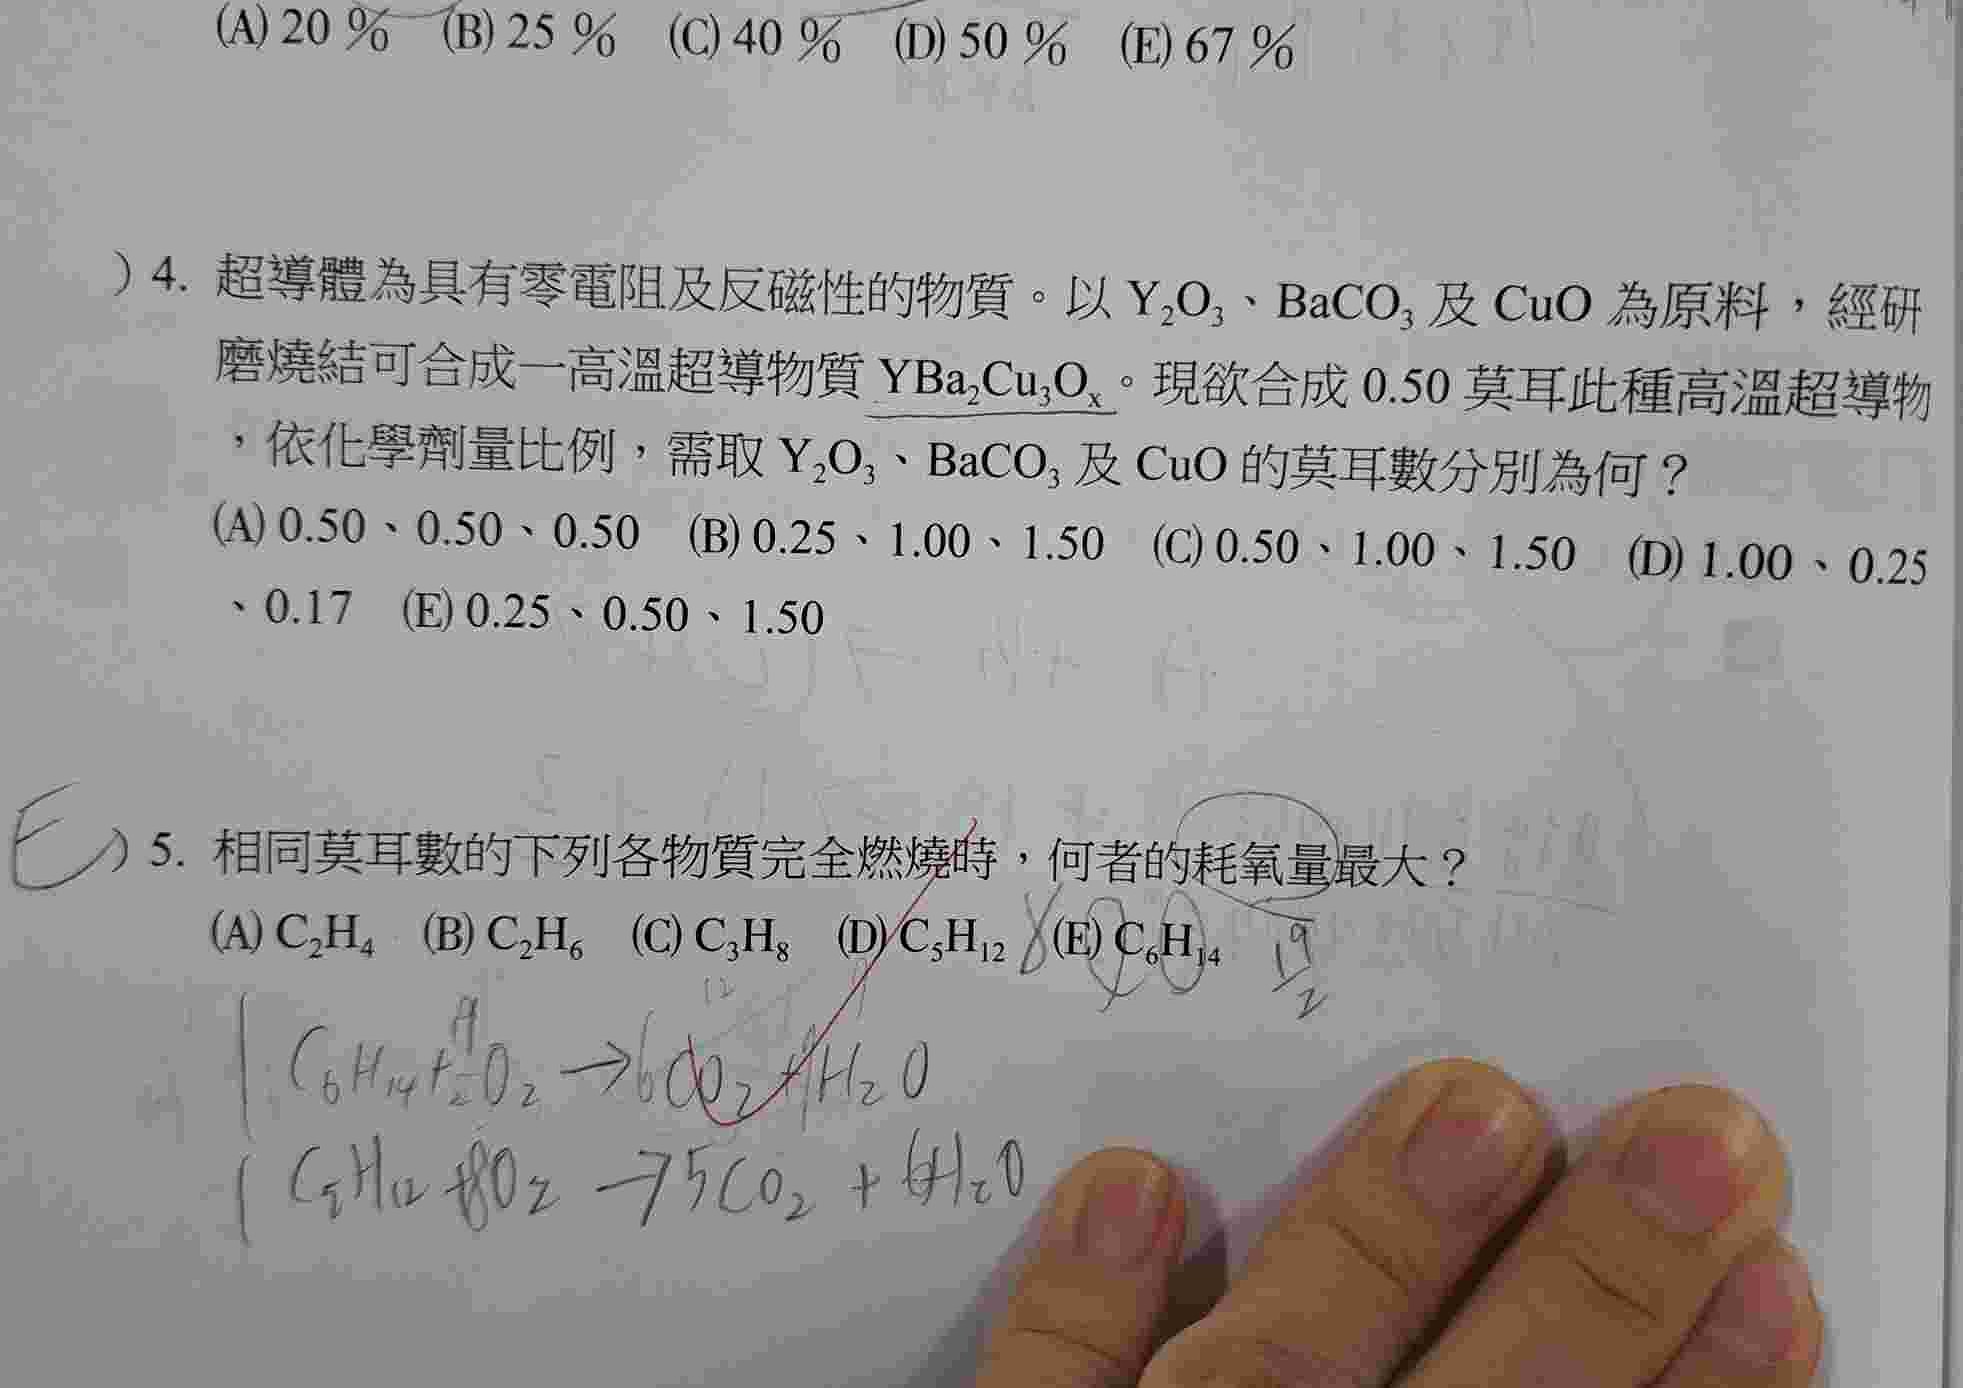 (A) 20 % (B) 25 % (C) 40 % (D) 50 % (E) 67 %
) 4. 超導體為具有零電阻及反磁性的物質。以 Y₂O₃、BaCO₃ 及 CuO 為原料，經研
磨燒結可合成一高溫超導物質 YBa₂Cu₃Oₓ。現欲合成 0.50 莫耳此種高溫超導物
，依化學劑量比例，需取 Y₂O₃、BaCO₃ 及 CuO 的莫耳數分別為何？
(A) 0.50、0.50、0.50 (B) 0.25、1.00、1.50 (C) 0.50、1.00、1.50 (D) 1.00、0.25
、0.17 (E) 0.25、0.50、1.50
E ) 5. 相同莫耳數的下列各物質完全燃燒時，何者的耗氧量最大？
(A) C₂H₄ (B) C₂H₆ (C) C₃H₈ (D) C₅H₁₂ 8 (E) C₆H₁₄ 19/2
C₆H₁₄ + O₂ → 6CO₂ + H₂O
C₅H₁₂ + 8O₂ → 5CO₂ + 6H₂O